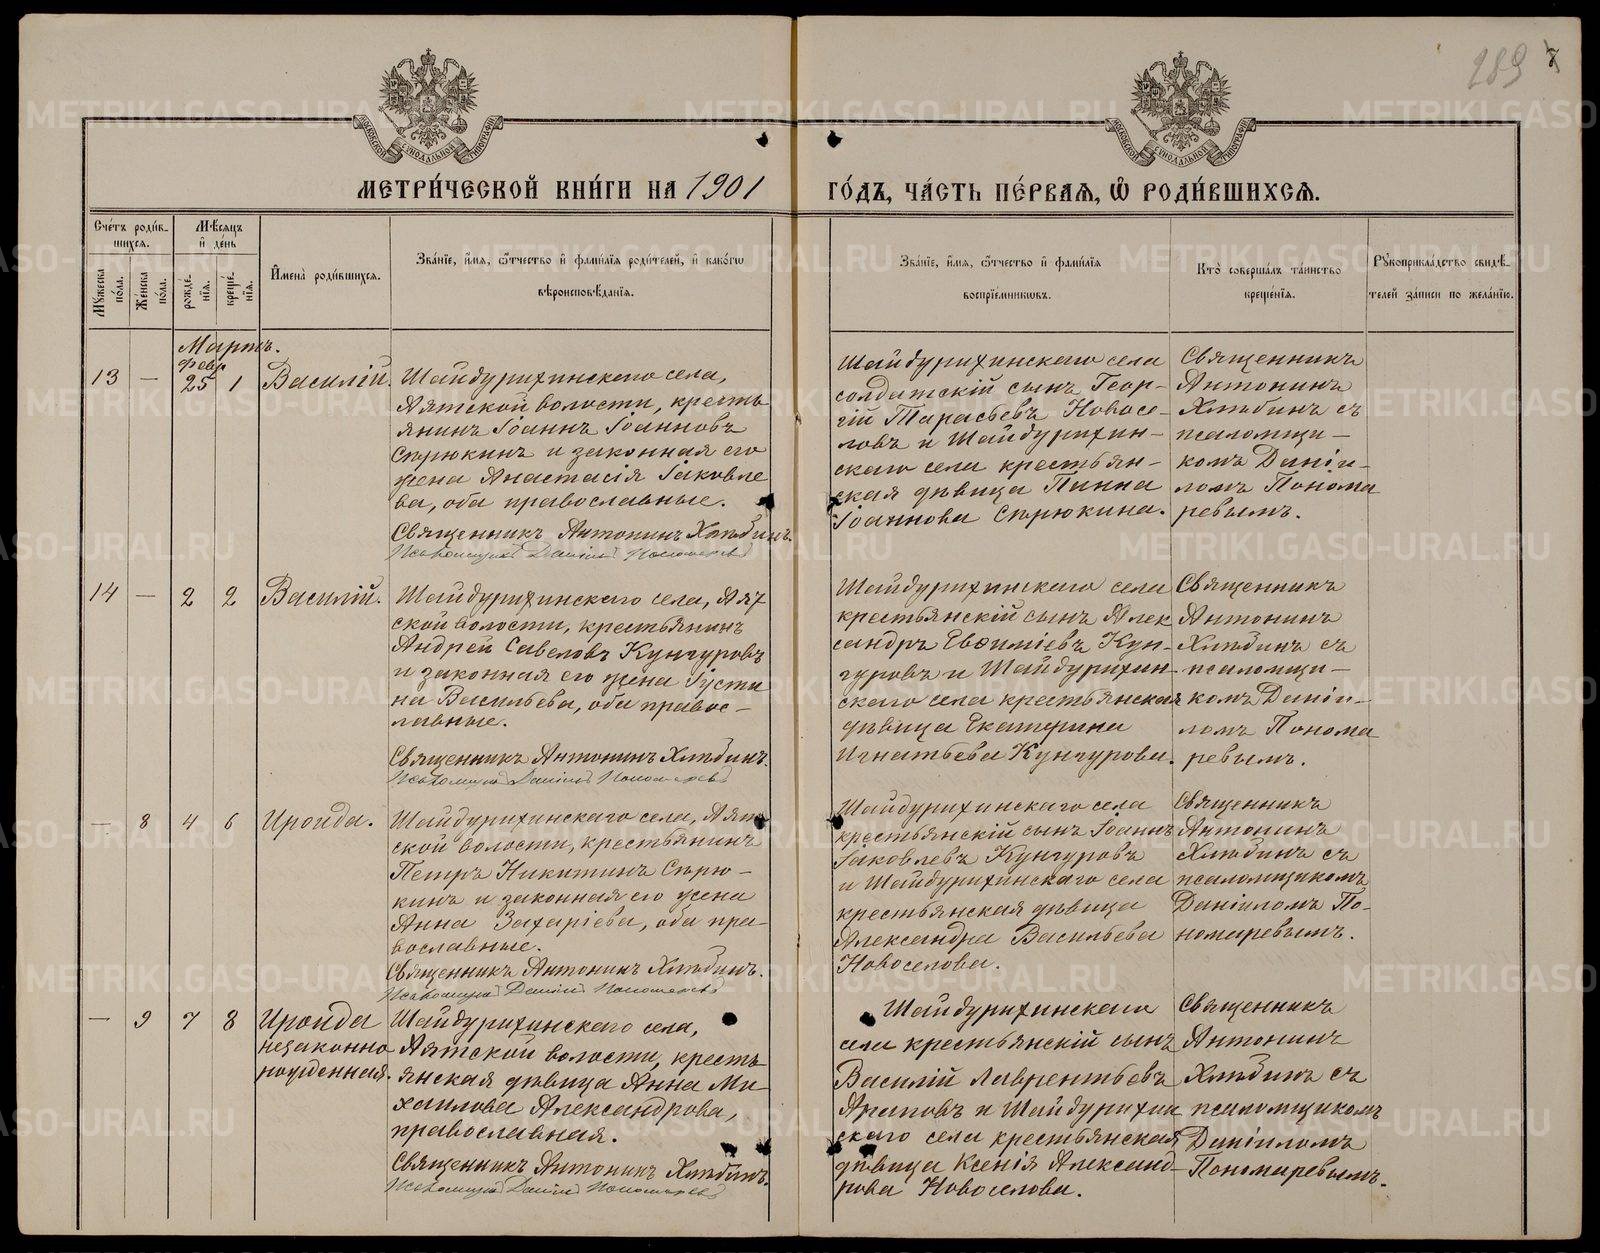 289
МОСКОВСКОЙ СѴНОДАЛЬНОЙ ТИПОГРАФІИ
МОСКОВСКОЙ СѴНОДАЛЬНОЙ ТИПОГРАФІИ
МЕТРИ́ЧЕСКОЙ КНИ́ГИ НА 1901 ГО́ДЪ, ЧА́СТЬ ПЕ́РВАѦ, Ѡ҆ РОДИ́ВШИХСѦ.
Сче́тъ роди́в-
шихсѧ.
Мѣ́сѧцъ
и҆ де́нь
Мꙋ́жеска
по́ла.
Же́нска
по́ла.
рожде́-
нїѧ.
креще́-
нїѧ.
И҆мена̀ роди́вшихсѧ.
Зва́нїе, и҆́мѧ, ѻ҆́тчество и҆ фами́лїѧ роди́телей, и҆ како́гѡ
вѣроисповѣ́данїѧ.
Зва́нїе, и҆́мѧ, ѻ҆́тчество и҆ фами́лїѧ
воспрїе́мникѡвъ.
Кто̀ соверша́лъ та́инство
креще́нїѧ.
Рꙋкоприкла́дство свидѣ́-
телей за́писи по жела́нїю.
Мартъ.
13
—
Февр.
25
1
Василій.
Шайдурихинскаго села,
Аятской волости, кресть
янинъ Іоаннъ Іоанновъ
Сѣрюкинъ и законная его
жена Анастасія Іаковле
ва, оба православные.
Священникъ Антонинъ Хлѣбинъ.
Псаломщикъ Даніилъ Пономаревъ
Шайдурихинскаго села
солдатскій сынъ Геор-
гій Тарасьевъ Новосе-
ловъ и Шайдурихин-
скаго села крестьян-
ская дѣвица Пинна
Іоаннова Сѣрюкина.
Священникъ
Антонинъ
Хлѣбинъ съ
псаломщи-
комъ Даніи-
ломъ Понома
ревымъ.
14
—
2
2
Василій.
Шайдурихинскаго села, Аят
ской волости, крестьянинъ
Андрей Савеловъ Кунгуровъ
и законная его жена Іусти
на Васильева, оба правос-
лавные.
Священникъ Антонинъ Хлѣбинъ.
Псаломщикъ Даніилъ Пономаревъ
Шайдурихинскаго села
крестьянскій сынъ Алек
сандръ Евѳиміевъ Кун-
гуровъ и Шайдурихин-
скаго села крестьянская
дѣвица Екатерина
Игнатьева Кунгурова.
Священникъ
Антонинъ
Хлѣбинъ съ
псаломщи-
комъ Даніи-
ломъ Понома
ревымъ.
—
8
4
6
Ироида.
Шайдурихинскаго села, Аят
ской волости, крестьянинъ
Петръ Никитинъ Сѣрю-
кинъ и законная его жена
Анна Захаріева, оба пра-
вославные.
Священникъ Антонинъ Хлѣбинъ.
Псаломщикъ Даніилъ Пономаревъ
Шайдурихинскаго села
крестьянскій сынъ Іоаннъ
Іаковлевъ Кунгуровъ
и Шайдурихинскаго села
крестьянская дѣвица
Александра Васильева
Новоселова.
Священникъ
Антонинъ
Хлѣбинъ съ
псаломщикомъ
Даніиломъ По-
номаревымъ.
—
9
7
8
Ироида
незаконно
рожденная.
Шайдурихинскаго села,
Аятской волости, кресть
янская дѣвица Анна Ми-
хаилова Александрова,
православная.
Священникъ Антонинъ Хлѣбинъ.
Псаломщикъ Даніилъ Пономаревъ
Шайдурихинскаго
села крестьянскій сынъ
Василій Лаврентьевъ
Араповъ и Шайдурихин
скаго села крестьянская
дѣвица Ксенія Александ-
рова Новоселова.
Священникъ
Антонинъ
Хлѣбинъ съ
псаломщикомъ
Даніиломъ
Пономаревымъ.